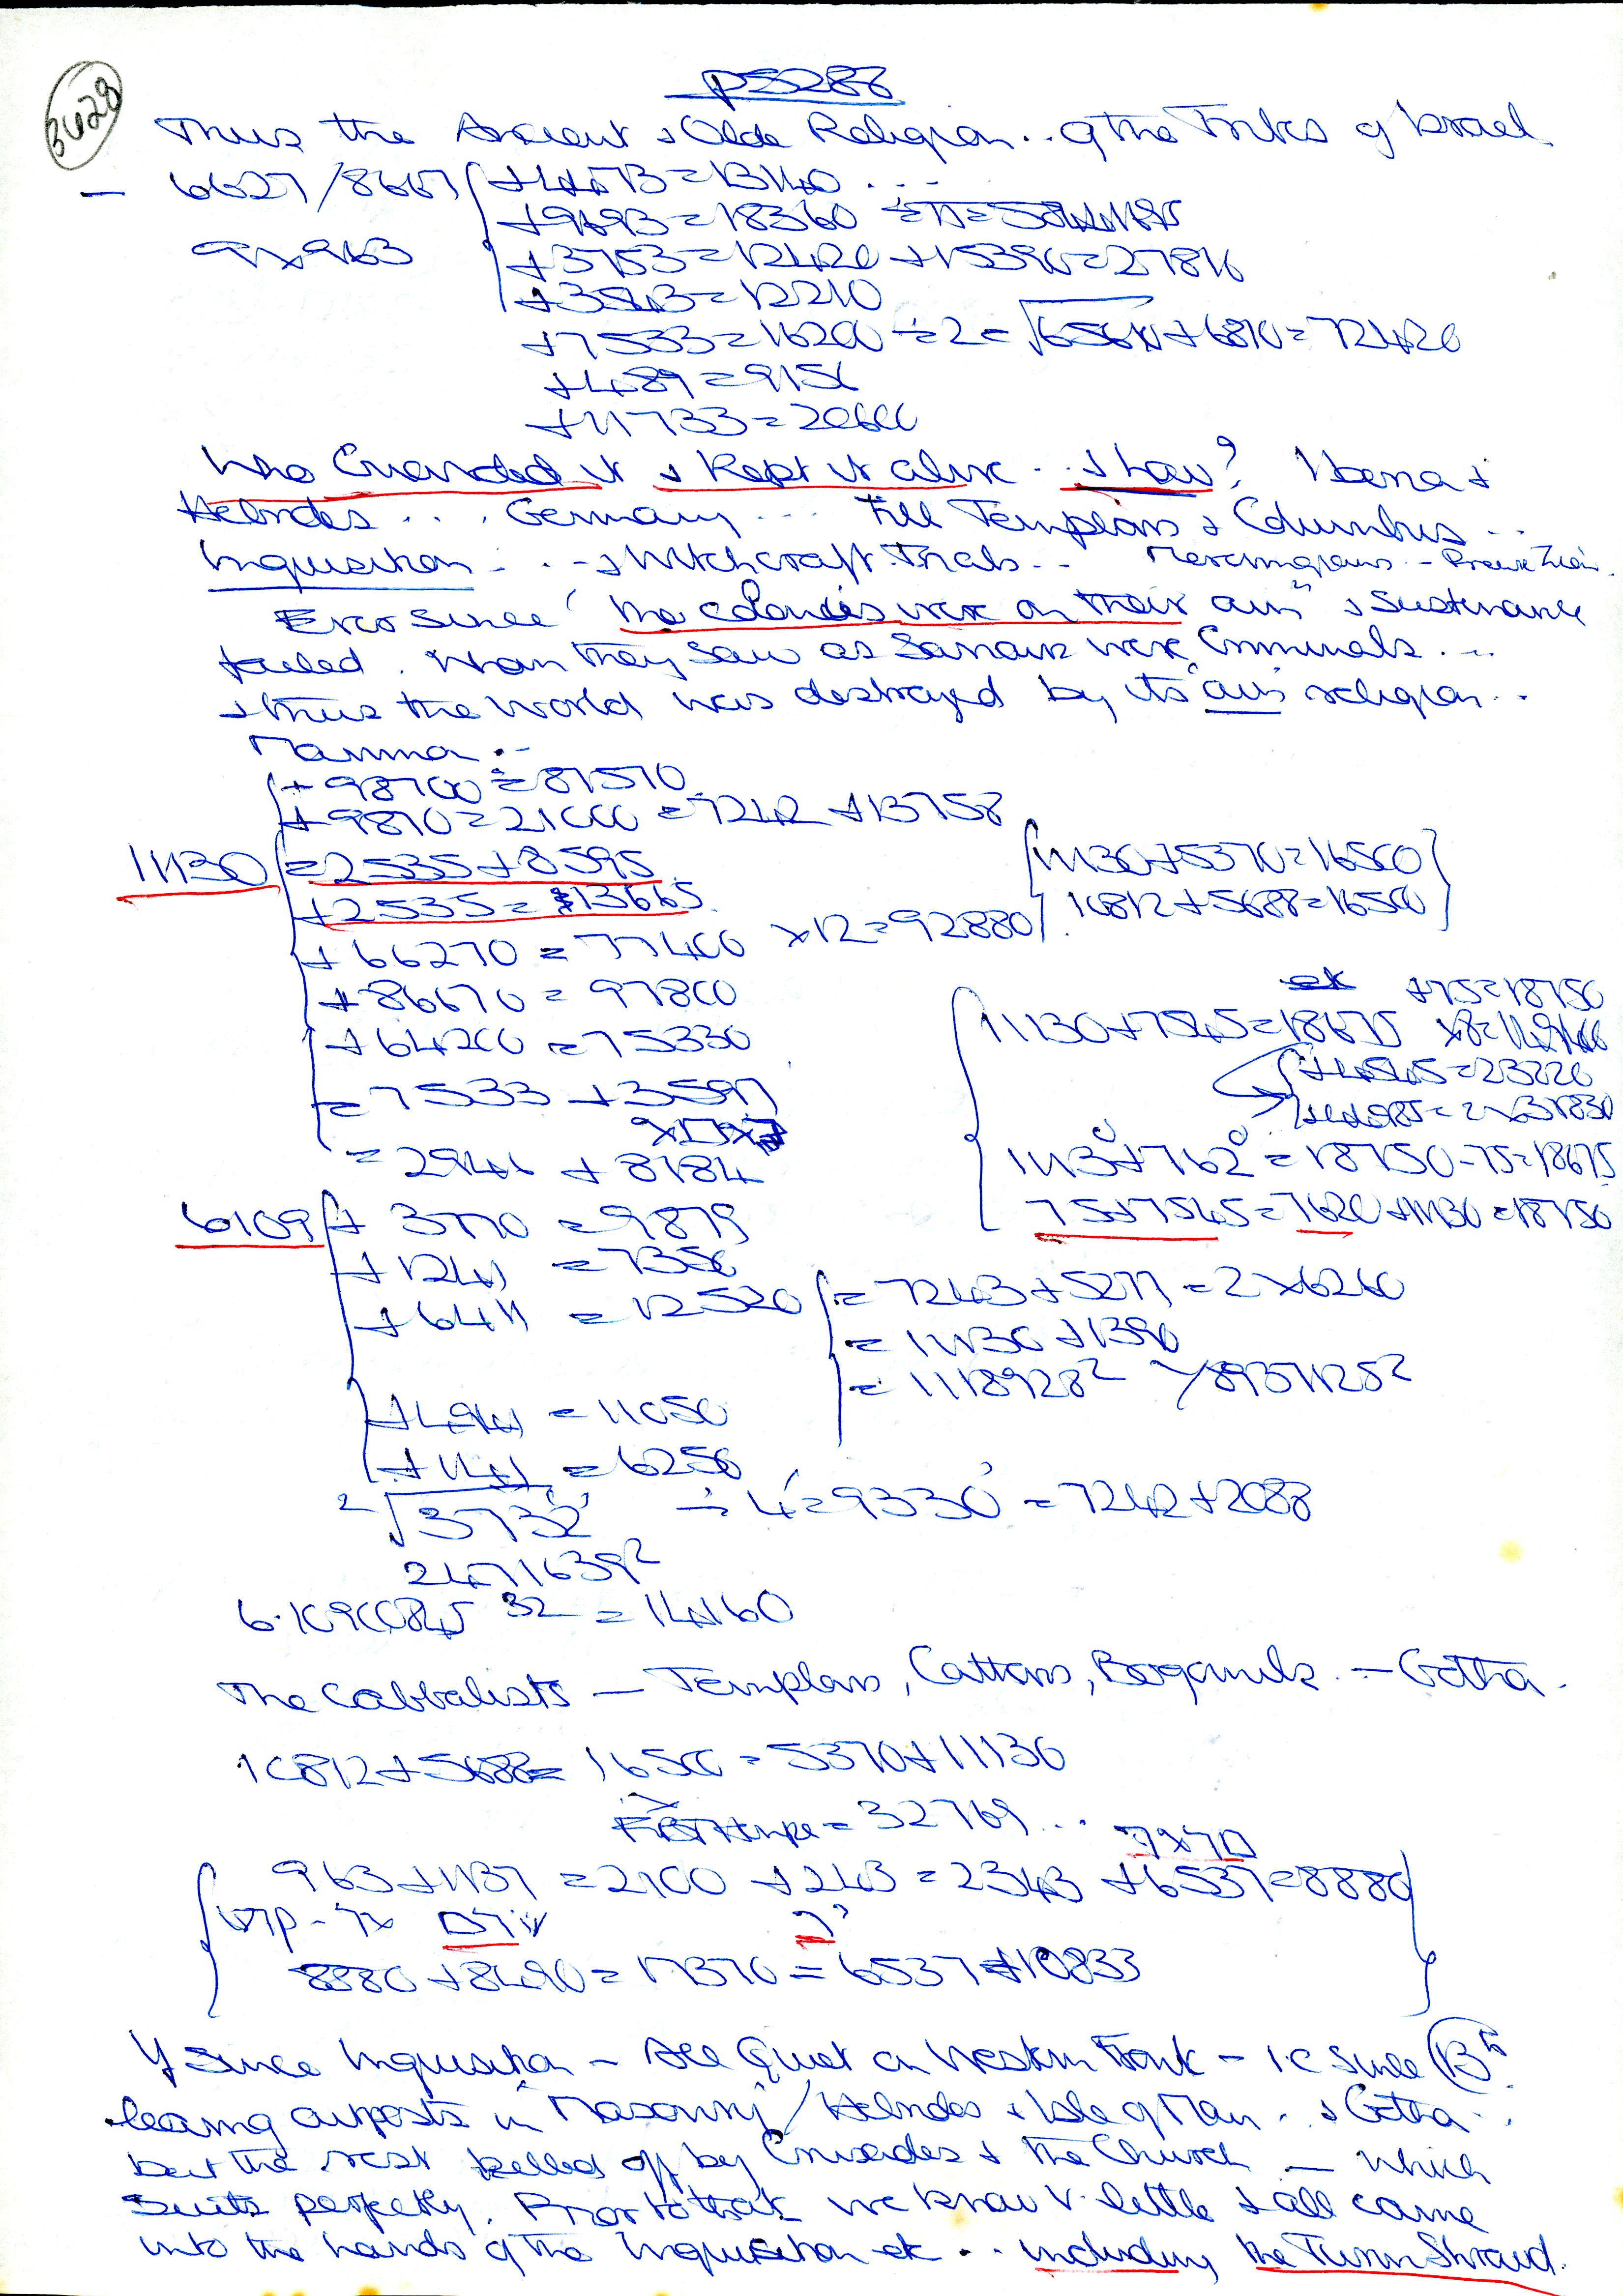 p5288
3428
Thus the Ancient & Olde Religion .. of the Tribes of Israel
— 6627/8667 { +4473 = 13140 ...
+9693 = 18360
9 x 963
+3753 = 12420 + 15396 = 27816
+3543 = 12210
+7533 = 16200 ÷ 2 = √65610 + 6810 = 72420
+489 = 9156
+11733 = 20400
Who Guarded it & Kept it alive .. & how? Iberia &
Hebrides .... Germany ... till Templars & Columbus ..
Inquisition . .. & Witchcraft Trials .. Merovingians - Prieure Zion.
Ever since "the colonies were on their own" & Sustenance
failed. Whom they saw as Saviours were Criminals ...
& thus the world was destroyed by its own religion ..
Mammon :-
+ 98700 = 87570
+ 9870 = 21000 = 7242 + 13758
11130 { = 2535 + 8595
+ 2535 = 13665
{ 11130 + 5370 = 16500
10812 + 5688 = 16500 }
+ 66270 = 77400 x 12 = 92880
+ 86670 = 97800
+ 64200 = 75330
= 7533 + 3597
= 2946 + 8184
+75 = 18750
11130 + 7545 = 18675
+4545 = 23220
1113° + 762° = 18750 - 75 = 18675
75 + 7545 = 7620 + 11130 = 18750
6109 { + 3770 = 9879
+ 1241 = 7350
+ 6411 = 12520 { = 7243 + 5277 = 2 x 6260
= 11130 + 1390
= 1118928² 489371128²
+ 4941 = 11050
+ 141 = 6250
²√3732' ÷ 4 = 9330' = 7242 + 2088
24771639²
6.10900845 32 = 14160
The Cabbalists — Templars, Cathars, Bogomils. — Gotha.
10812 + 5688 = 16500 = 5370 + 11130
= 32769 ...
7 x 70
963 + 1137 = 2100 + 243 = 2343 + 6537 = 8880
8880 + 8490 = 17370 = 6537 + 10833
If since Inquisition - All Quiet on Western Front - i.e since 13th
leaving outposts in "Masonry"/Hebrides & Isle of Man . & Gotha ..
but the rest killed off by Crusades & the Church — which
suits perfectly. Prior to that we know v. little & all came
into the hands of the Inquisition etc .. including the Turin Shroud.